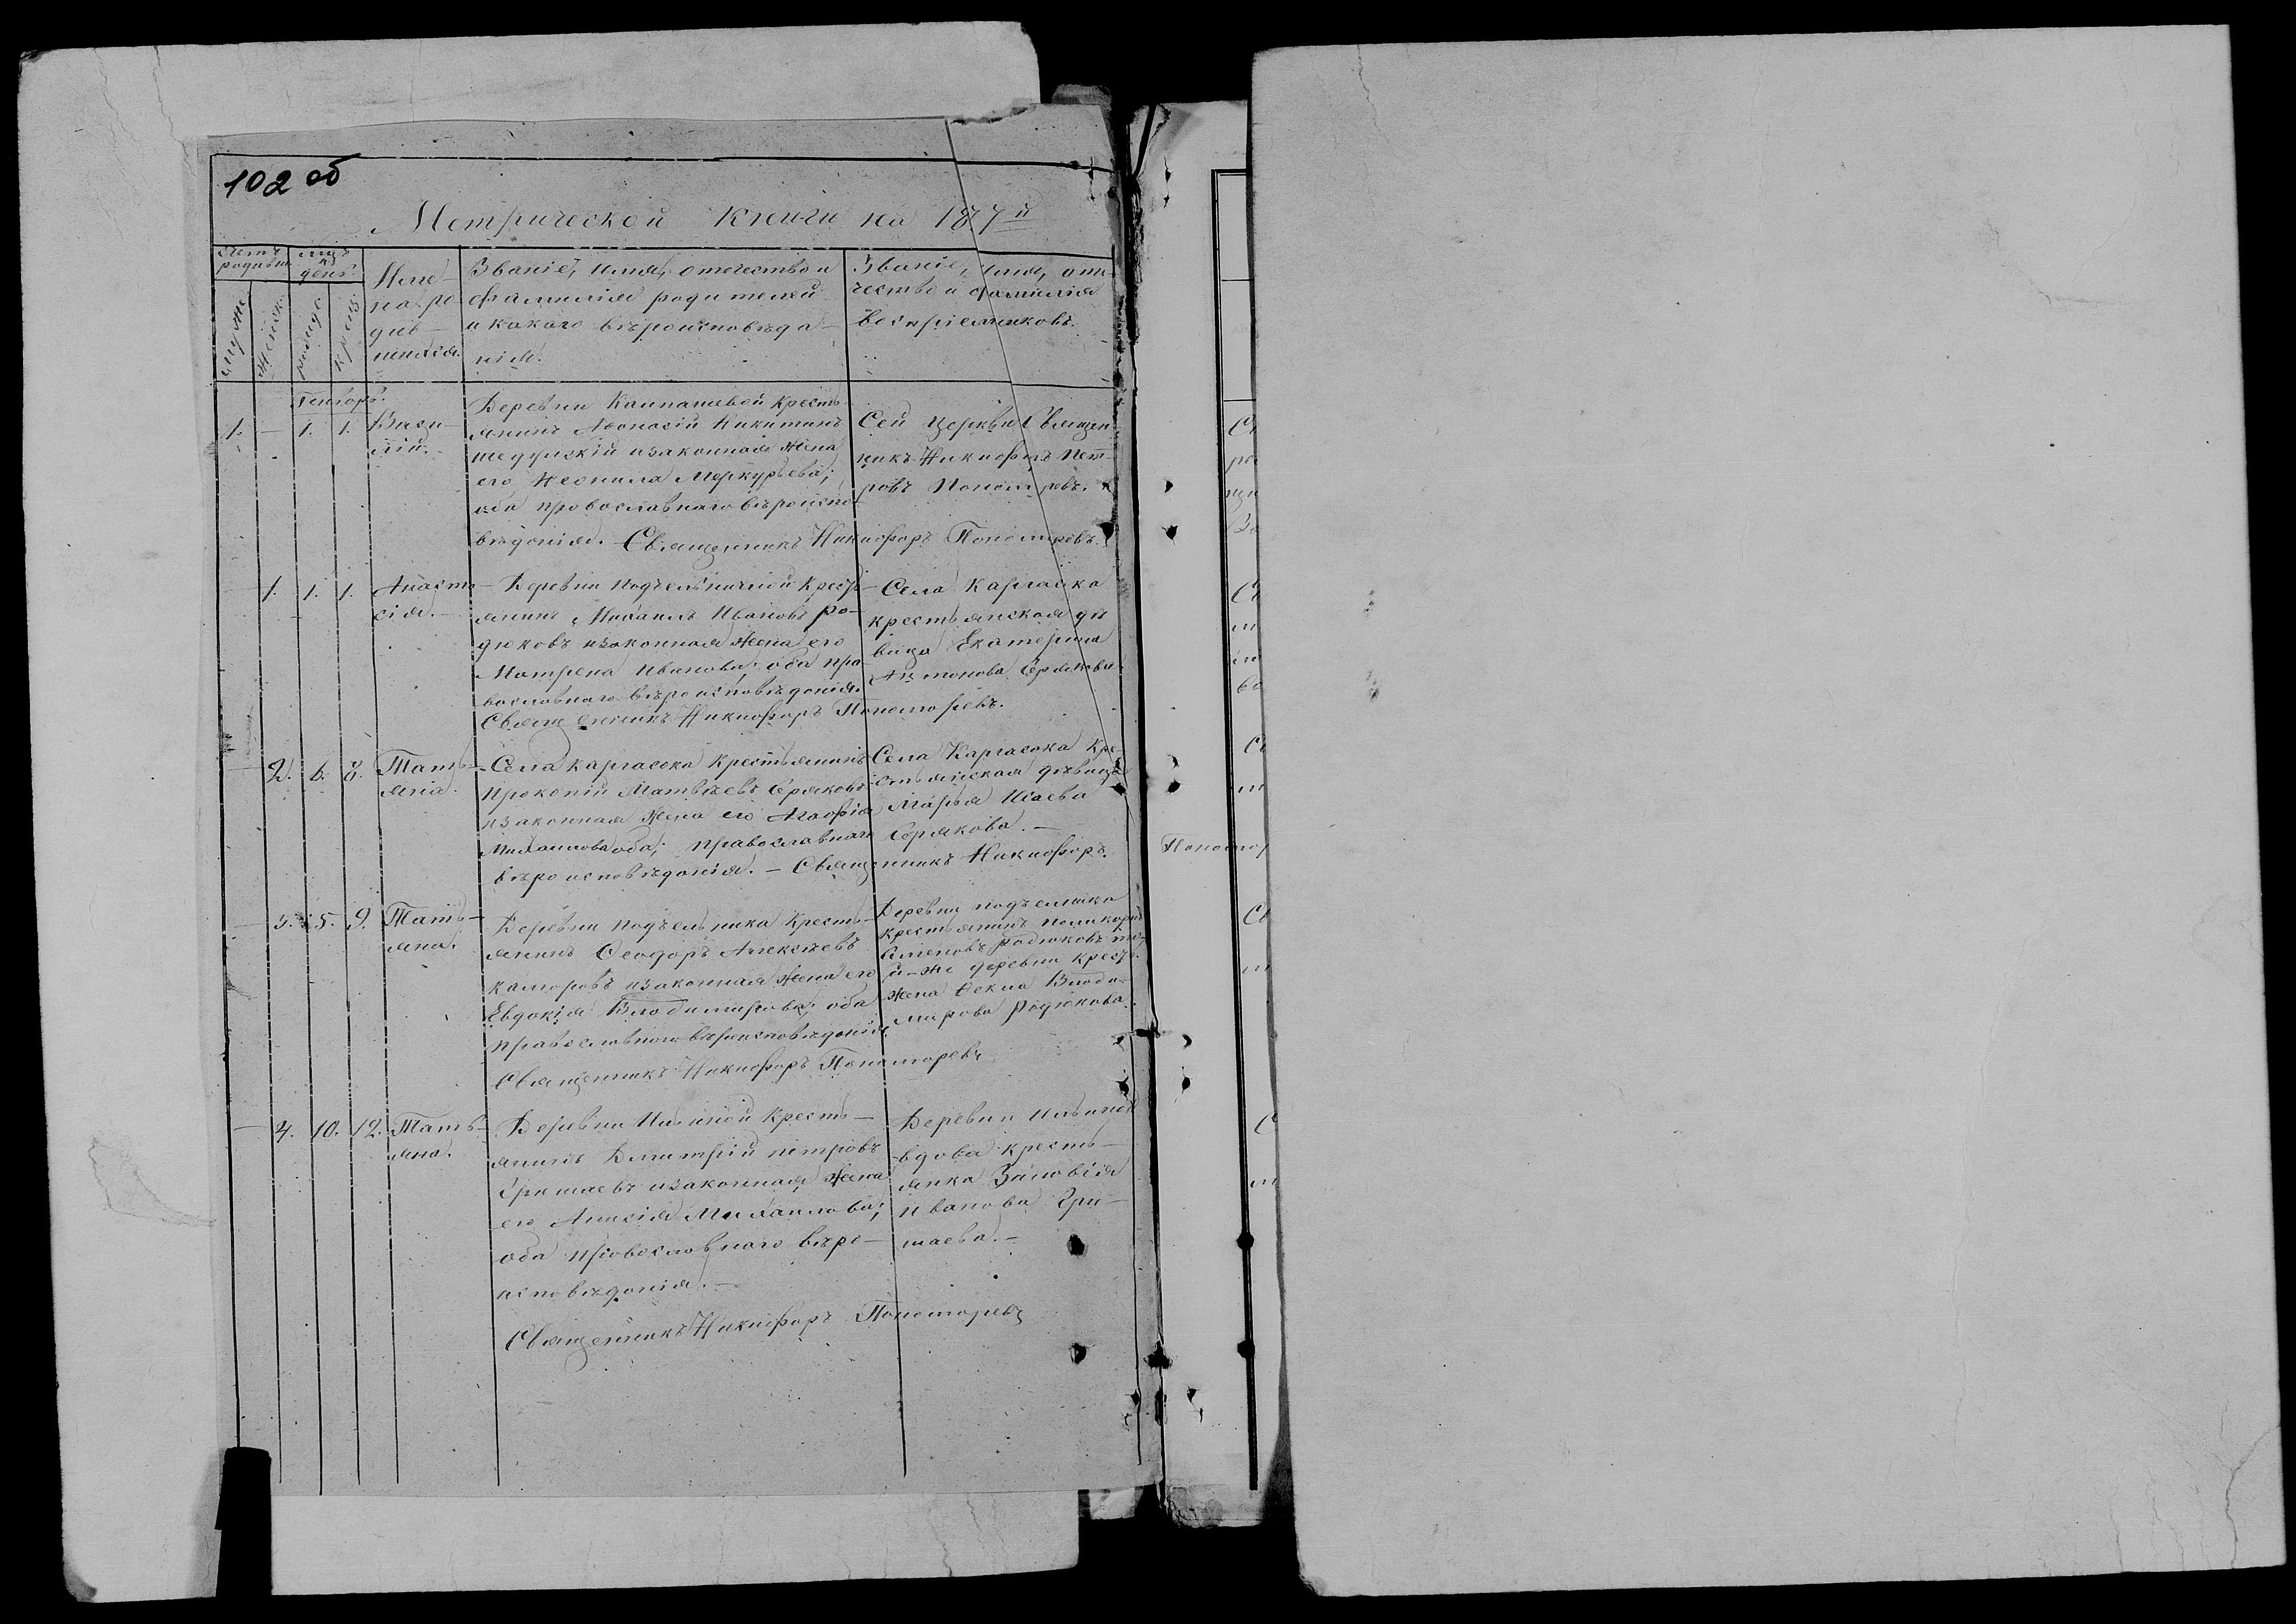 102 об
Метрической книги на 187 й
счетъ родивш.
мцъ и день.
мужес.
женск.
рожде.
крещ.
Име-
на ро
див-
шихся.
Званіе, имя, отечество и
фамилія родителей
и какаго вѣроисповѣда-
нія.
Званіе, имя, оте-
чество и фамилія
воспріемниковъ.
Генворь.
1. — 1. 1. Васи-
лій.
Деревни Каипашевой кресть-
янинъ Афонасій Никитинъ
и законная жена
его Неонила Меркурьева;
оба провославнаго вѣроиспо-
вѣдонія. — Священникъ Никифоръ Пономаревъ.
Сей церкви Священ-
никъ Никифоръ Пет-
ровъ Пономаревъ.
— 1. 1. 1. Анаста-
сія. —
Деревни Подъельничной кресть-
янинъ Михаилъ Ивановъ Ро-
дюковъ и законная жена его
Матрена Иванова; оба пра-
вословного вѣроисповѣдонія.
Священникъ Никифоръ Пономоревъ.
Села Каргасока
крестьянская дѣ
вица Екатерина
Антонова Серякова
— 2. 6. 8. Тать-
яна.
Села Каргасока крестьянинъ
Прокопій Матвѣевъ Серяковъ
и законная жена его Агафія
Михаилова оба; православнаго
вѣроисповѣдонія. — Священникъ Никифоръ.
Села Каргасока кре-
стьянская дѣвица
Марья Исаева
Серякова. —
Пономор
— 3. 5. 9. Тать-
яна.
Деревни Подъельника кресть-
янинъ Феодоръ Алексѣевъ
Каморовъ и законная жена его
Евдокія Влодимирова; оба
правословного вѣроисповѣдонія.
Священникъ Никифоръ Пономоревъ
Деревни Подъелника
крестьянинъ Поликарпъ
Семеновъ Родюковъ то-
й-же деревни крест.
жена Фекла Влоди-
мирова Родюкова.
— 4. 10. 12. Тать-
яна.
Деревни Ильиной кресть-
янинъ Дмитрій Петровъ
Гришаевъ и законная жена
его Анисія Михаилова;
оба провословнаго вѣро-
исповѣдонія. —
Священникъ Никифоръ Пономоревъ
Деревни Ильиной
вдова кресть-
янка Зиновія
Иванова Гри-
шаева. —